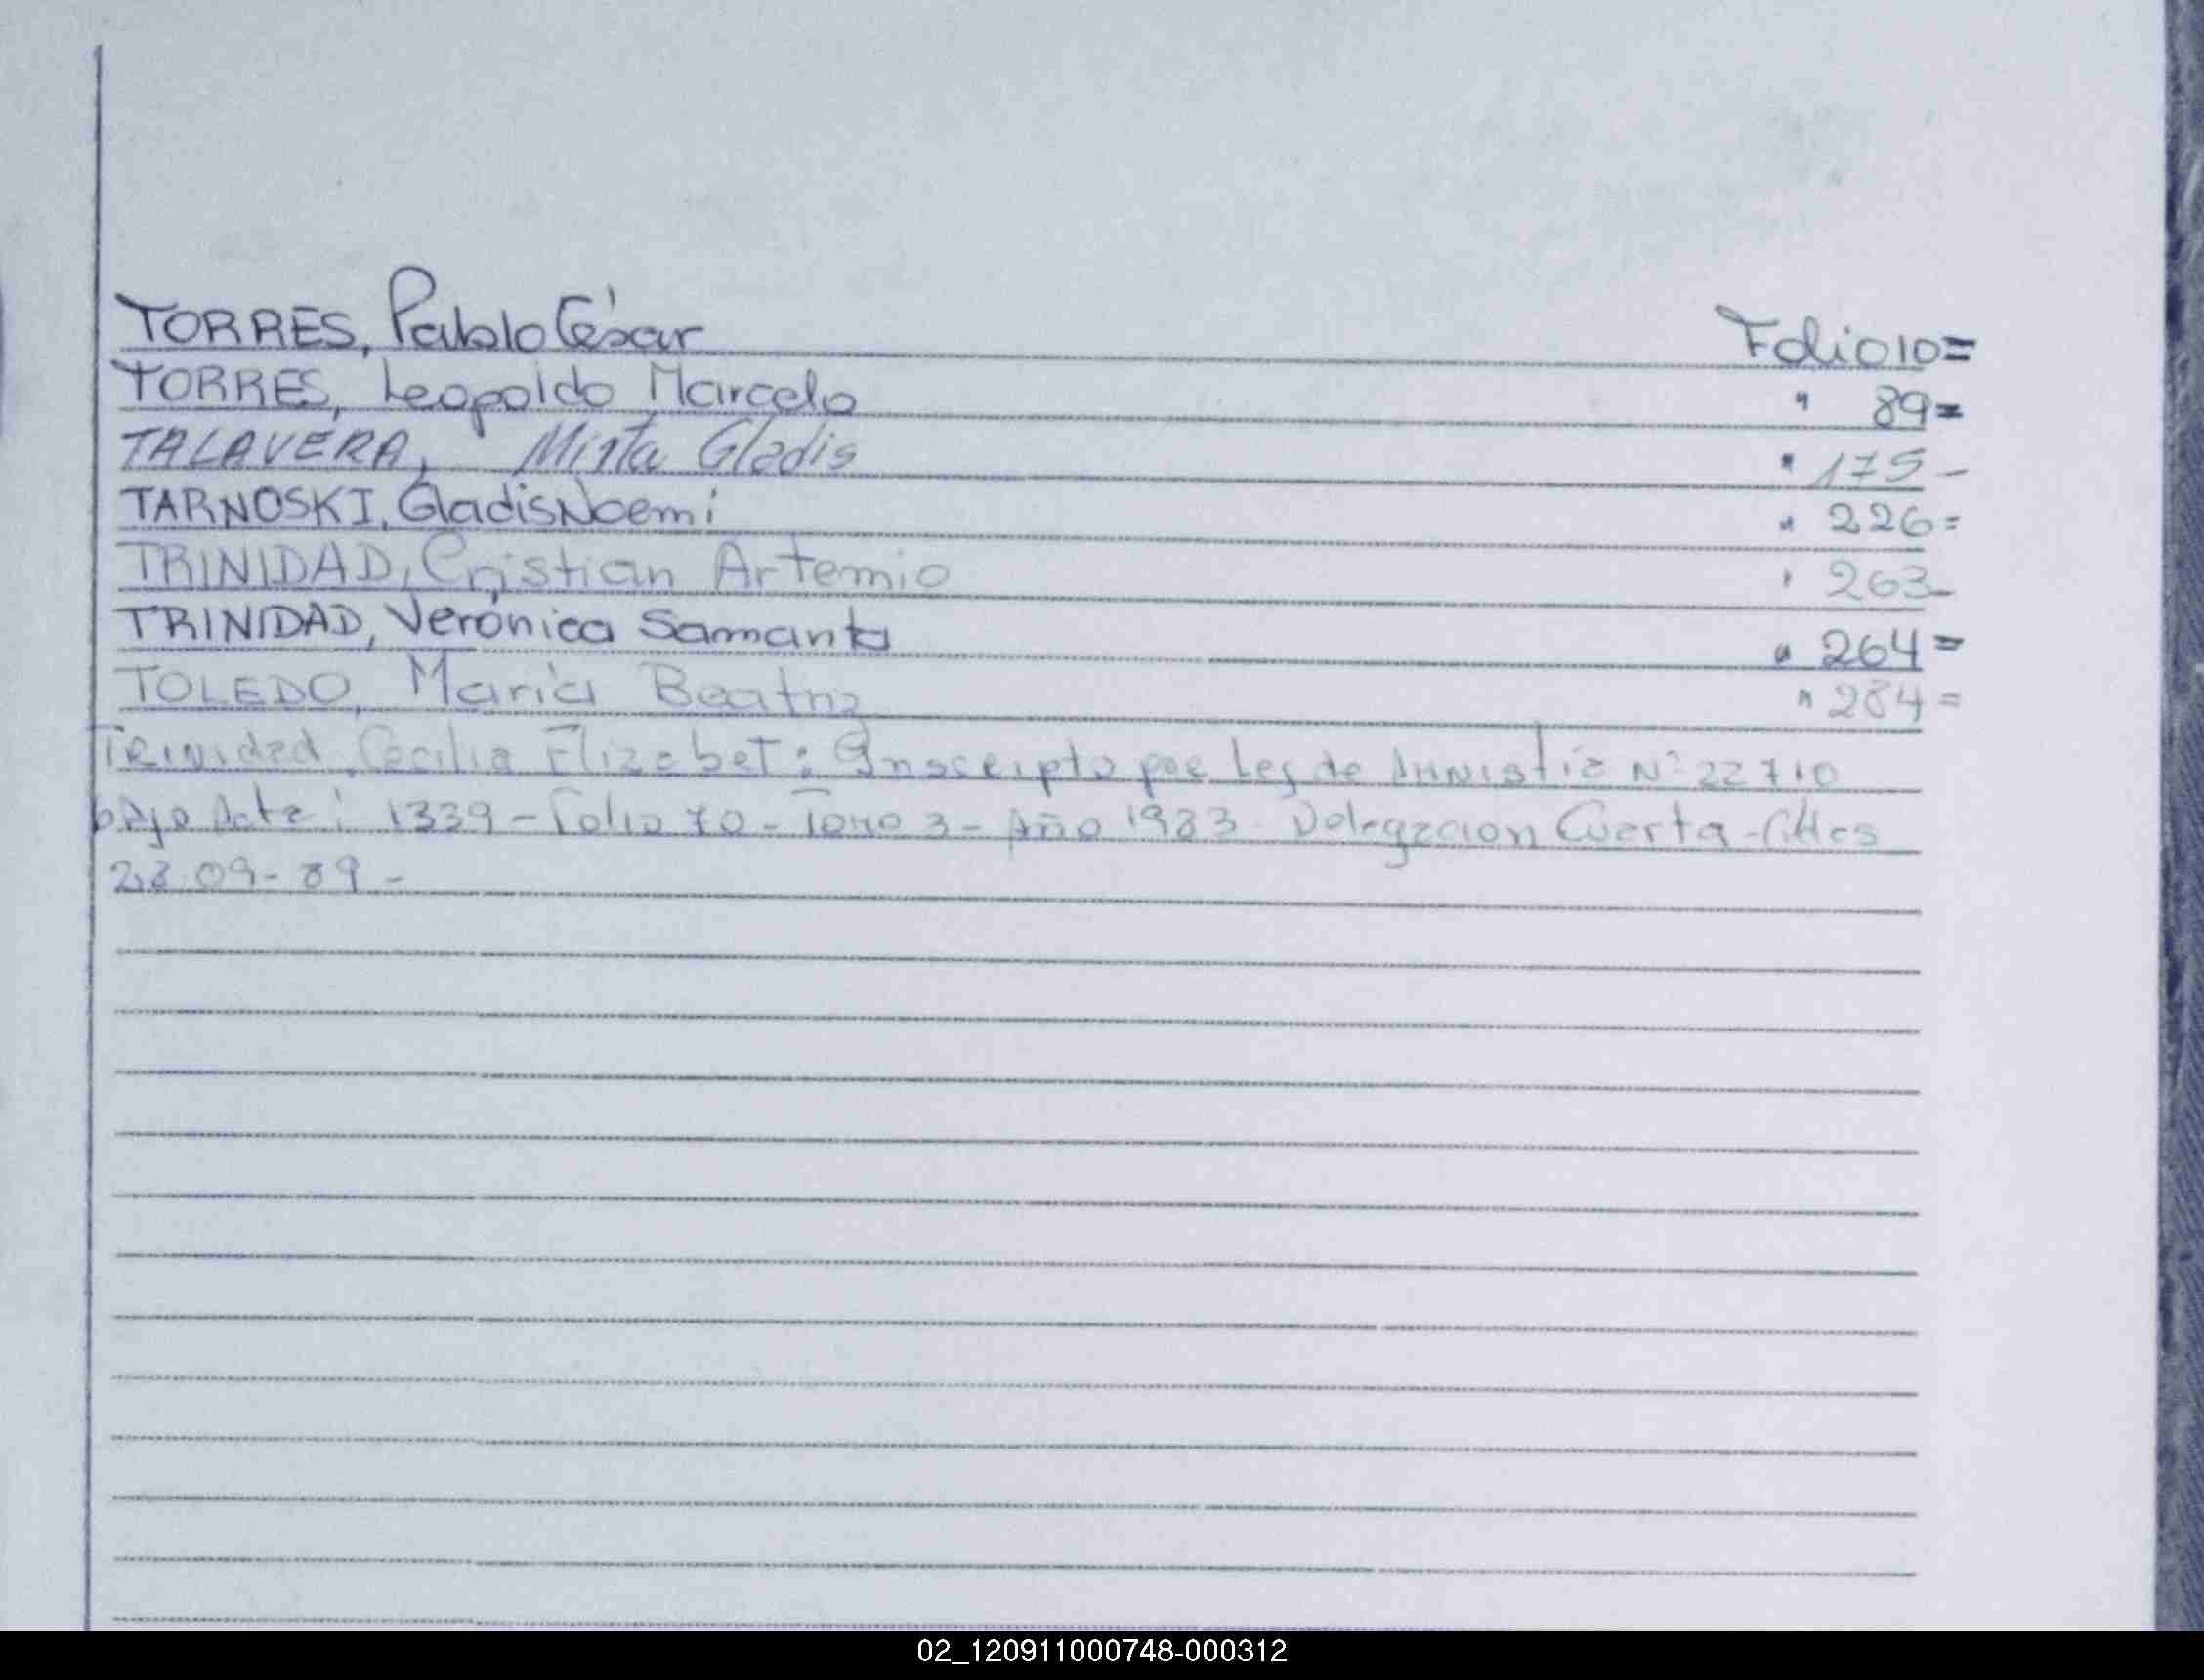 TORRES, Pablo César Folio 10=
TORRES, Leopoldo Marcelo " 89=
TALAVERA, Mirta Gladis " 175-
TARNOSKI, Gladis Noemi " 226=
TRINIDAD, Cristian Artemio " 263-
TRINIDAD, Verónica Samanta " 264=
TOLEDO, María Beatriz " 284=
Trinidad, Cecilia Elizabet: Inscripto por Ley de Amnistia Nº 22710
bajo Acta: 1339 - Folio 70 - Tomo 3 - Año 1983 - Delegacion Cuarta -
23-09-89 -
02_120911000748-000312